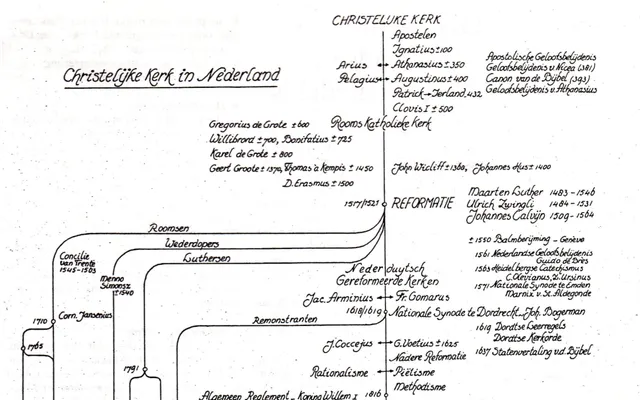 CHRISTELIJKE KERK
Apostelen
Ignatius ±100
Arius ↔ Athanasius ±350
Pelagius ↔ Augustinus ±400
Patrick → Ierland 432
Clovis I ±500
Apostolische Geloofsbelijdenis
Geloofsbelijdenis v. Nicea (381)
Canon van de Bijbel (393)
Geloofsbelijdenis v. Athanasius
Christelijke Kerk in Nederland
Rooms Katholieke Kerk
Gregorius de Grote ±600
Willibrord ±700, Bonifatius ±725
Karel de Grote ±800
Geert Groote ±1370, Thomas à Kempis ±1450
D. Erasmus ±1500
John Wicliff ±1380, Johannes Hus ±1400
1517/1521 REFORMATIE
Maarten Luther 1483-1546
Ulrich Zwingli 1484-1531
Johannes Calvijn 1509-1564
Roomsen
Wederdopers
Luthersen
Concilie
van Trente
1545-1563
Menno
Simonsz
±1540
±1550 Psalmberijming - Genève
1561 Nederlandse Geloofsbelijdenis
Guido de Brès
1563 Heidelbergse Catechismus
C. Olevianus, Z. Ursinus
1571 Nationale Synode te Emden
Marnix v. St. Aldegonde
Nederduytsch
Gereformeerde Kerken
Jac. Arminius ↔ Fr. Gomarus
1618/1619 Nationale Synode te Dordrecht - Joh. Bogerman
Remonstranten
1619 Dordtse Leerregels
Dordtse Kerkorde
1637 Statenvertaling v.d. Bijbel
1710 Corn. Jansenius
1765
J. Coccejus ↔ G. Voetius ±1625
Nadere Reformatie
1791
Rationalisme ↔ Piëtisme
Methodisme
Algemeen Reglement - Koning Willem I 1816